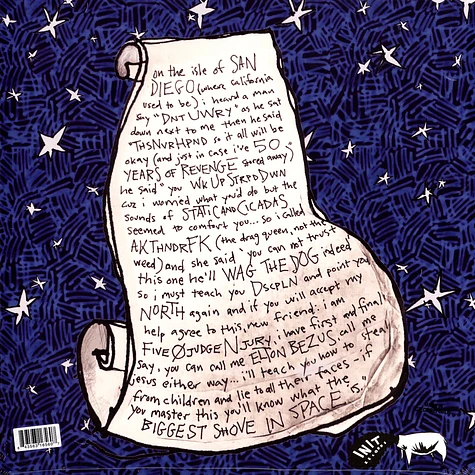 on the isle of SAN
DIEGO (where california
used to be) i heard a man
say "DNT UWRY" as he sat
down next to me then he said
"THSNVRHPND so it all will be
okay (and just in case i've 50
YEARS OF REVENGE stored away)"
he said "you WKUPSTRPDDWN
cuz i worried what you'd do but the
sounds of STATIC AND CICADAS
seemed to comfort you... so i called
AKTHNDRFK (the drag queen, not the
weed) and she said "you can not trust
this one he'll WAG THE DOG indeed
so i must teach you DSCPLN and point you
NORTH again and if you will accept my
help agree to this, new friend: i am
FIVE ØJUDGE NJURY. i have first and final
say. you can call me ELTON BEZUS call me
jesus either way... ill teach you how to steal
from children and lie to all their faces - if
you master this you'll know what the
BIGGEST SHOVE IN SPACE is."
INIT